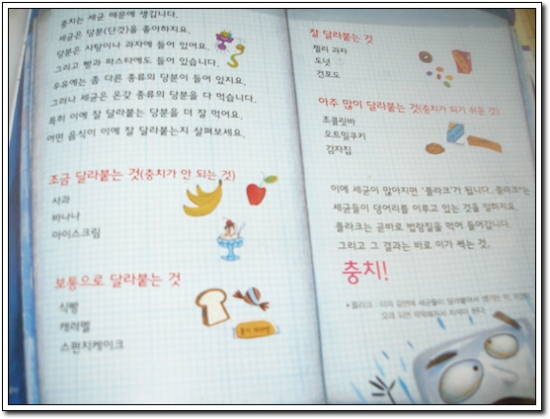 충치는 세균 때문에 생깁니다.
세균은 당분(단것)을 좋아하지요.
당분은 사탕이나 과자에 들어 있어요.
그리고 빵과 파스타에도 들어 있습니다.
우유에는 좀 다른 종류의 당분이 들어 있지요.
그러나 세균은 온갖 종류의 당분을 다 먹습니다.
특히 이에 잘 달라붙는 당분을 더 잘 먹어요.
어떤 음식이 이에 잘 달라붙는지 살펴보세요.
조금 달라붙는 것(충치가 안 되는 것)
사과
바나나
아이스크림
보통으로 달라붙는 것
식빵
캐러멜
스펀지케이크
잘 달라붙는 것
젤리 과자
도넛
건포도
아주 많이 달라붙는 것(충치가 되기 쉬운 것)
초콜릿바
오트밀쿠키
감자칩
이에 세균이 많아지면 '플라크'가 됩니다. 플라크*는
세균들이 덩어리를 이루고 있는 것을 말하지요.
플라크는 곧바로 법랑질을 먹어 들어갑니다.
그리고 그 결과는 바로 이가 썩는 것,
충치!
* 플라크 : 이의 겉면에 세균들이 달라붙어서 생기는 막.
오래 되면